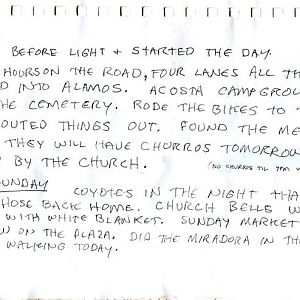 BEFORE LIGHT + STARTED THE DAY
HOURS ON THE ROAD, FOUR LANES ALL TH
D INTO ALAMOS. ACOSTA CAMPGROU
HE CEMETERY. RODE THE BIKES TO T
OUTED THINGS OUT. FOUND THE ME
THEY WILL HAVE CHURROS TOMORROW
BY THE CHURCH. (NO CHURROS TIL 7PM
UNDAY COYOTES IN THE NIGHT THA
HOSE BACK HOME. CHURCH BELLS W
WITH WHITE BLANKET. SUNDAY MARKET
W ON THE PLAZA. DID THE MIRADORA IN TH
WALKING TODAY.